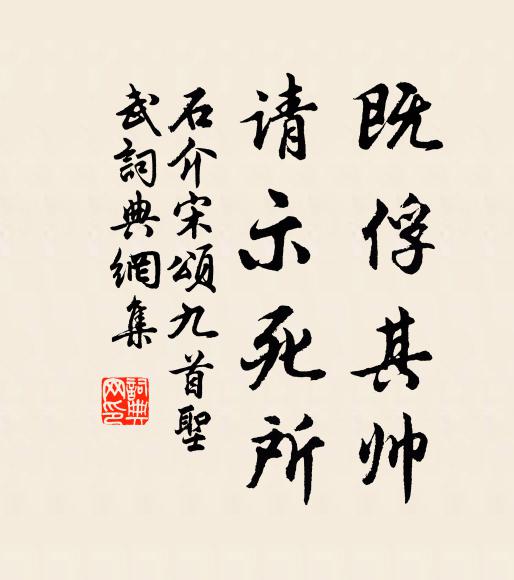 既俘其帅
请示死所
石介宋頌九首聖
武詞典網集
詞典
网印